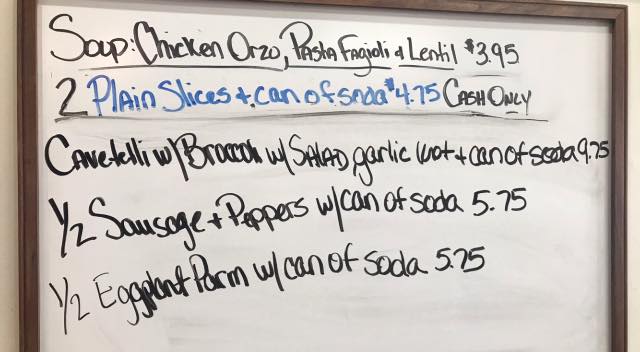 Soup: Chicken Orzo, Pasta Fagioli & Lentil $3.95
2 Plain Slices + can of soda $4.75 Cash Only
Cavetelli w/ Broccoli w/ Salad, garlic knot + can of soda 9.75
1/2 Sausage + Peppers w/ can of soda 5.75
1/2 Eggplant Parm w/ can of soda 5.75